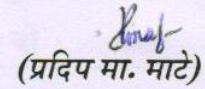 (प्रदिप मा. माटे)